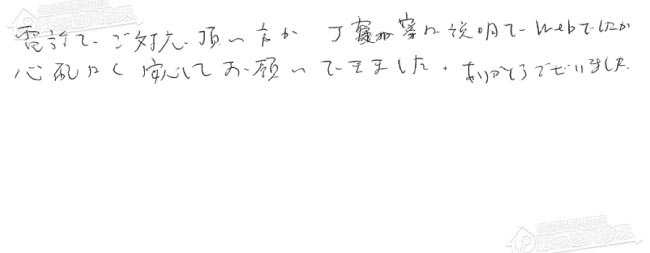 電話でご対応頂いた方が 丁寧に説明で Webでしたが
心配なく安心してお願いできました。ありがとうございました。